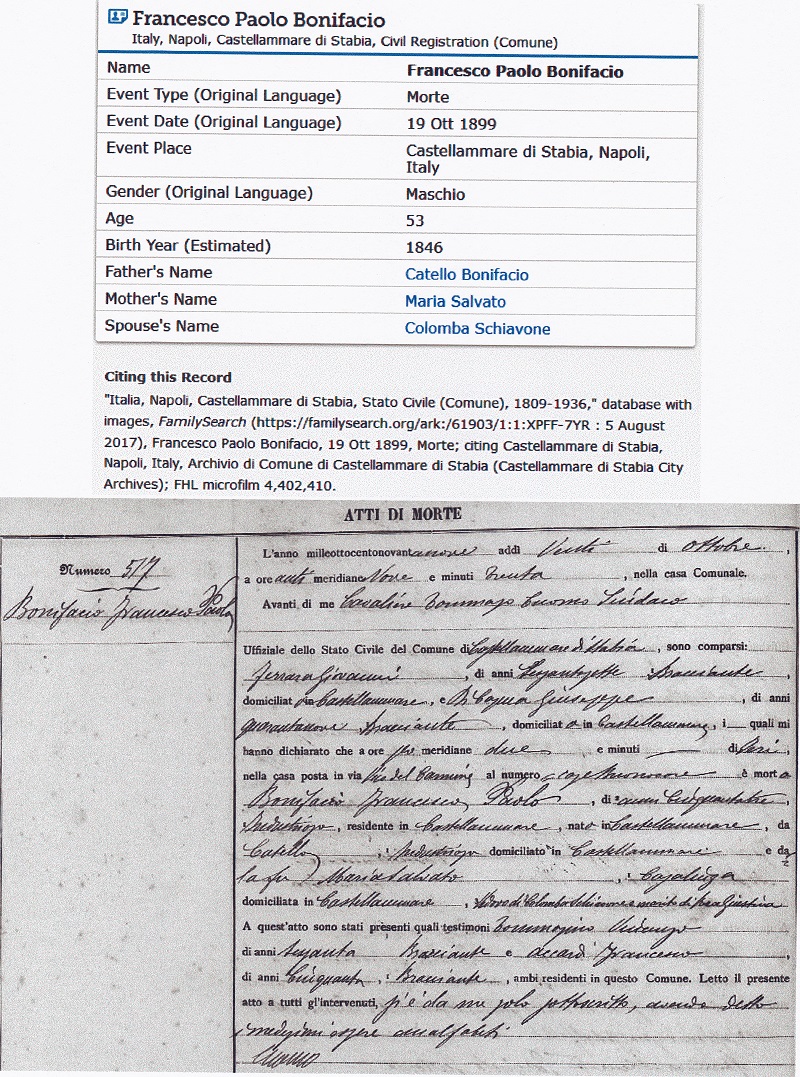 Francesco Paolo Bonifacio
Italy, Napoli, Castellammare di Stabia, Civil Registration (Comune)
Name Francesco Paolo Bonifacio
Event Type (Original Language) Morte
Event Date (Original Language) 19 Ott 1899
Event Place Castellammare di Stabia, Napoli,
Italy
Gender (Original Language) Maschio
Age 53
Birth Year (Estimated) 1846
Father's Name Catello Bonifacio
Mother's Name Maria Salvato
Spouse's Name Colomba Schiavone
Citing this Record
"Italia, Napoli, Castellammare di Stabia, Stato Civile (Comune), 1809-1936," database with
images, FamilySearch (https://familysearch.org/ark:/61903/1:1:XPFF-7YR : 5 August
2017), Francesco Paolo Bonifacio, 19 Ott 1899, Morte; citing Castellammare di Stabia,
Napoli, Italy, Archivio di Comune di Castellammare di Stabia (Castellammare di Stabia City
Archives); FHL microfilm 4,402,410.
ATTI DI MORTE
Numero 517
Bonifacio Francesco Paolo
L'anno milleottocentonovantanove addì Venti di Ottobre,
a ore anti meridiane Nove e minuti Trenta, nella casa Comunale.
Avanti di me Cavaliere Tommaso Cuomo Sindaco
Uffiziale dello Stato Civile del Comune di Castellammare di Stabia, sono comparsi:
Ferrara Giovanni, di anni Bracciante,
domiciliato in Castellammare, e Di Capua Giuseppe, di anni
quarantanove Bracciante, domiciliato in Castellammare, i quali mi
hanno dichiarato che a ore meridiane due e minuti — di ieri,
nella casa posta in via al numero è morto
Bonifacio Francesco Paolo, di anni Cinquantatre,
Industrioso, residente in Castellammare, nato in Castellammare, da
Catello, Industrioso domiciliato in Castellammare e da
la fu Maria Salvato, Casalinga
domiciliata in Castellammare, Vedovo di Colomba Schiavone e marito di Giustina
A quest'atto sono stati presenti quali testimoni Tommasino Vincenzo
di anni sessanta Bracciante e Francesco,
di anni Cinquanta, Bracciante, ambi residenti in questo Comune. Letto il presente
atto a tutti gl'intervenuti, si è da me solo sottoscritto, avendo detto
medesimi essere analfabeti
Cuomo